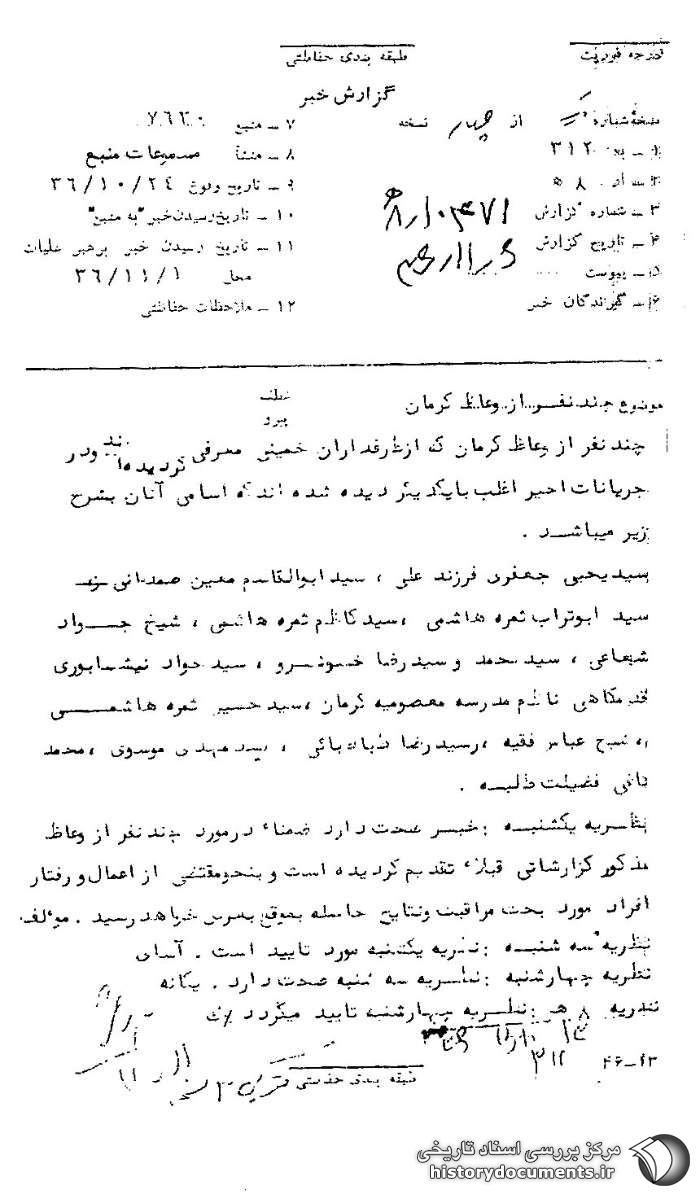 درجه فوریت
طبقه بندی حفاظتی
گزارش خبر
نسخه شماره از چهار نسخه
۱ – به ۳۱۲
۲ – از ۸ ه
۳ – شماره گزارش
۴ – تاریخ گزارش
۵ – پیوست
۶ – گیرندگان خبر
۷ – منبع ۷۶۲۰
۸ – منشأ مسموعات منبع
۹ – تاریخ وقوع ۳۶/۱۰/۲۴
۱۰ – تاریخ رسیدن خبر "به منبع"
۱۱ – تاریخ رسیدن خبر برهبر عملیات
محل ۳۶/۱۱/۱
۱۲ – ملاحظات حفاظتی
موضوع چند نفر از وعاظ کرمان
عطف
پیرو
چند نفر از وعاظ کرمان که از طرفداران خمینی معرفی گردیده‌اند و در
جریانات اخیر اغلب بایکدیگر دیده شده اند که اسامی آنان بشرح
زیر میباشد .
سید یحیی جعفری فرزند علی ، سید ابوالقاسم معین صمدانی
سید ابوتراب ثمره هاشمی ، سید کاظم ثمره هاشمی ، شیخ جواد
شعاعی ، سید محمد و سید رضا خسونسرو ، سید جواد نیشابوری
قدمگاهی ناظم مدرسه معصومیه کرمان ، سید حسین ثمره هاشمی
، شیخ عباس فقیه ، سید رضا طباطبائی ، سید مهدی موسوی ، محمد
فضیلت طلبه .
نظریه یکشنبه : خبر صحت دارد ضمناً در مورد چند نفر از وعاظ
مذکور گزارشاتی قبلاً تقدیم گردیده است و بنحو مقتضی از اعمال و رفتار
افراد مورد بحث مراقبت و نتایج حاصله بموقع بعرض خواهد رسید . مولف
نظریه سه شنبه : نظریه یکشنبه مورد تایید است . آسای
نظریه چهارشنبه : نظریه سه شنبه صحت دارد . یگانه
نظریه ۸ هـ : نظریه چهارشنبه تایید میگردد
۳۱۲
۴۶–۶۳
طبقه بندی حفاظتی
مرکز بررسی اسناد تاریخی
historydocuments.ir